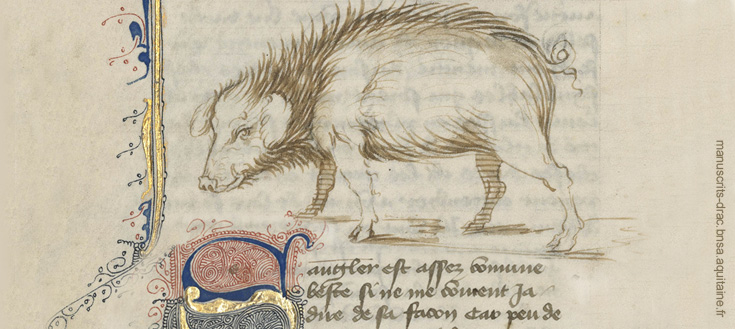 Sangler est asses comune
beste si ne me couient Ja
dire de sa facon Car peu de
manuscrits-drac.bnsa.aquitaine.fr